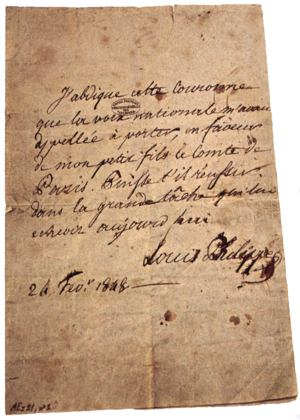 J'abdique cette Couronne
que la voix nationale m'avait
appellée à porter, en faveur
de mon petit fils le Comte de
Paris. Puisse t'il réussir
dans la grande tâche qui lui
echeoit aujourd'hui
Louis Philippe
24 Fevr. 1848